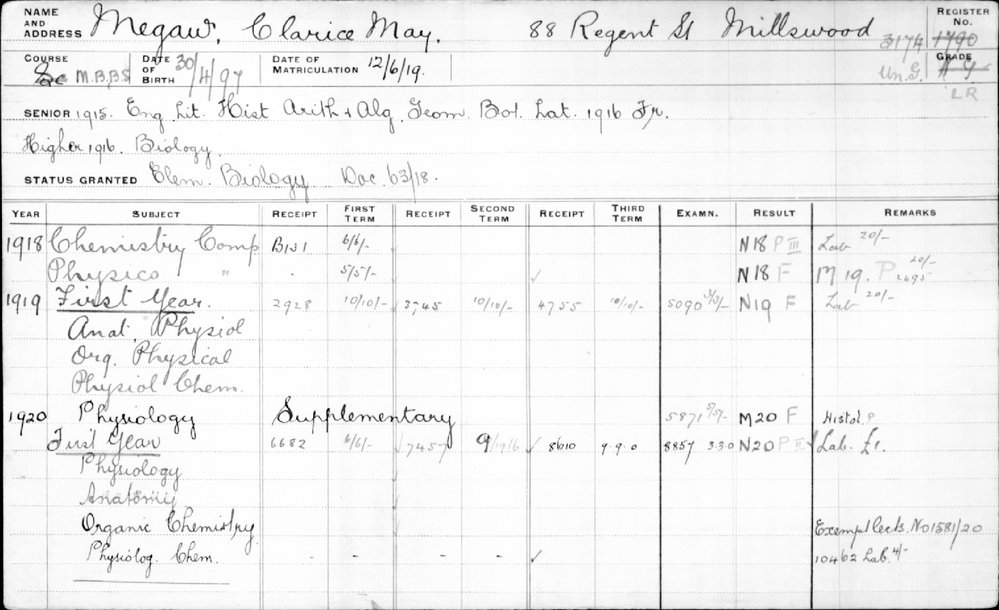 NAME AND ADDRESS Megaw, Clarice May. 88 Regent St Millswood REGISTER No. 3174 1790
COURSE Sc M.B,B.S DATE OF BIRTH 30/4/97 DATE OF MATRICULATION 12/6/19. Un.G. GRADE
LR
SENIOR 1915. Eng Lit. Hist Arith + Alg, Geom. Bot. Lat. 1916 Fr.
Higher 1916. Biology.
STATUS GRANTED Elem. Biology Doc. 63/18.
YEAR SUBJECT RECEIPT FIRST TERM RECEIPT SECOND TERM RECEIPT THIRD TERM EXAMN. RESULT REMARKS
1918 Chemistry Comp 6/6/- N18 P III Lab 20/-
Physics " . 5/5/- ✓ N18 F M 19. P 20/- 2495
1919 First Year. 2928 10/10/- 3745 10/10/- 4755 10/10/- 5090 3/3/- N19 F Lab 20/-
Anat. Physiol
Org. Physical
Physiol Chem.
1920 Physiology Supplementary 5871 M20 F Histol. P
First Year 6682 6/6/- 7457 9/19/6 8610 9.9.0 8857 3.3.0 N20 P II Lab. £1.
Physiology
Anatomy
Organic Chemistry. Exempt Lects. No 1581/20
Physiolog. Chem. - - - ✓ 10462 Lab. 4/-